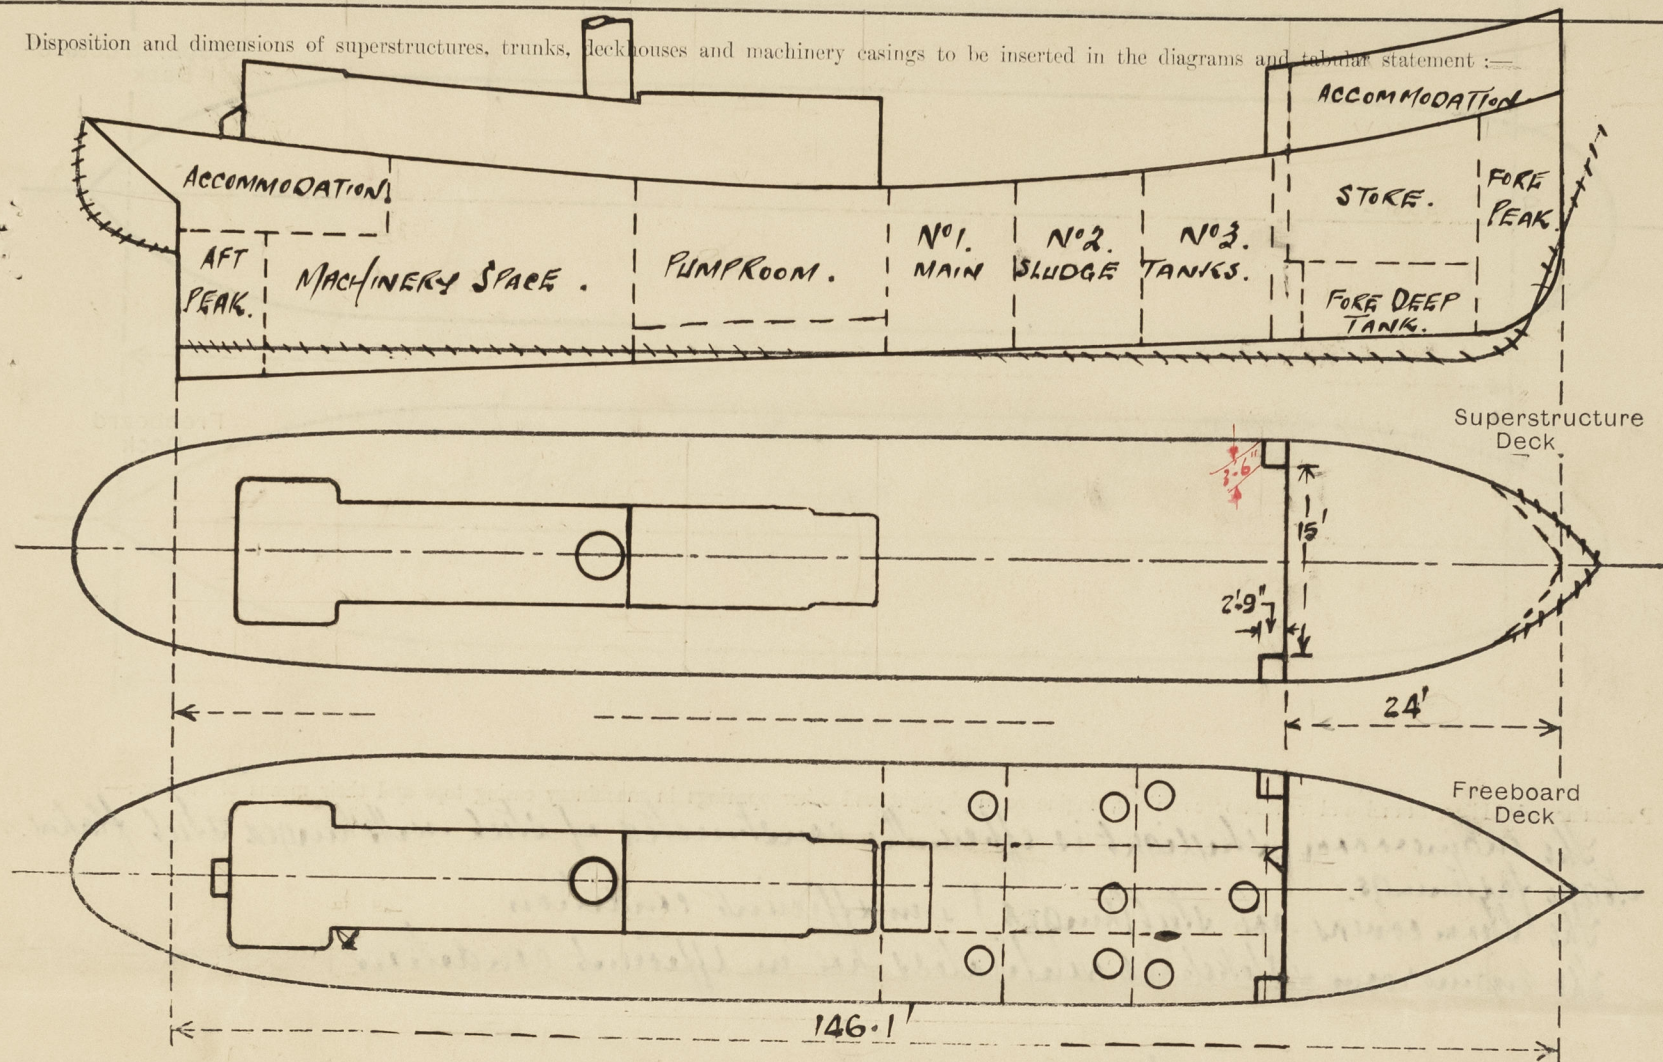 Disposition and dimensions of superstructures, trunks, deckhouses and machinery casings to be inserted in the diagrams and tabular statement :—
ACCOMMODATION
ACCOMMODATION
AFT
PEAK.
MACHINERY SPACE .
PUMPROOM .
No1.
MAIN
No2.
SLUDGE
No3.
TANKS.
STORE.
FORE
PEAK.
FORE DEEP
TANK.
Superstructure
Deck
3'-6"
15'
2'-9"
24'
Freeboard
Deck
146.1'